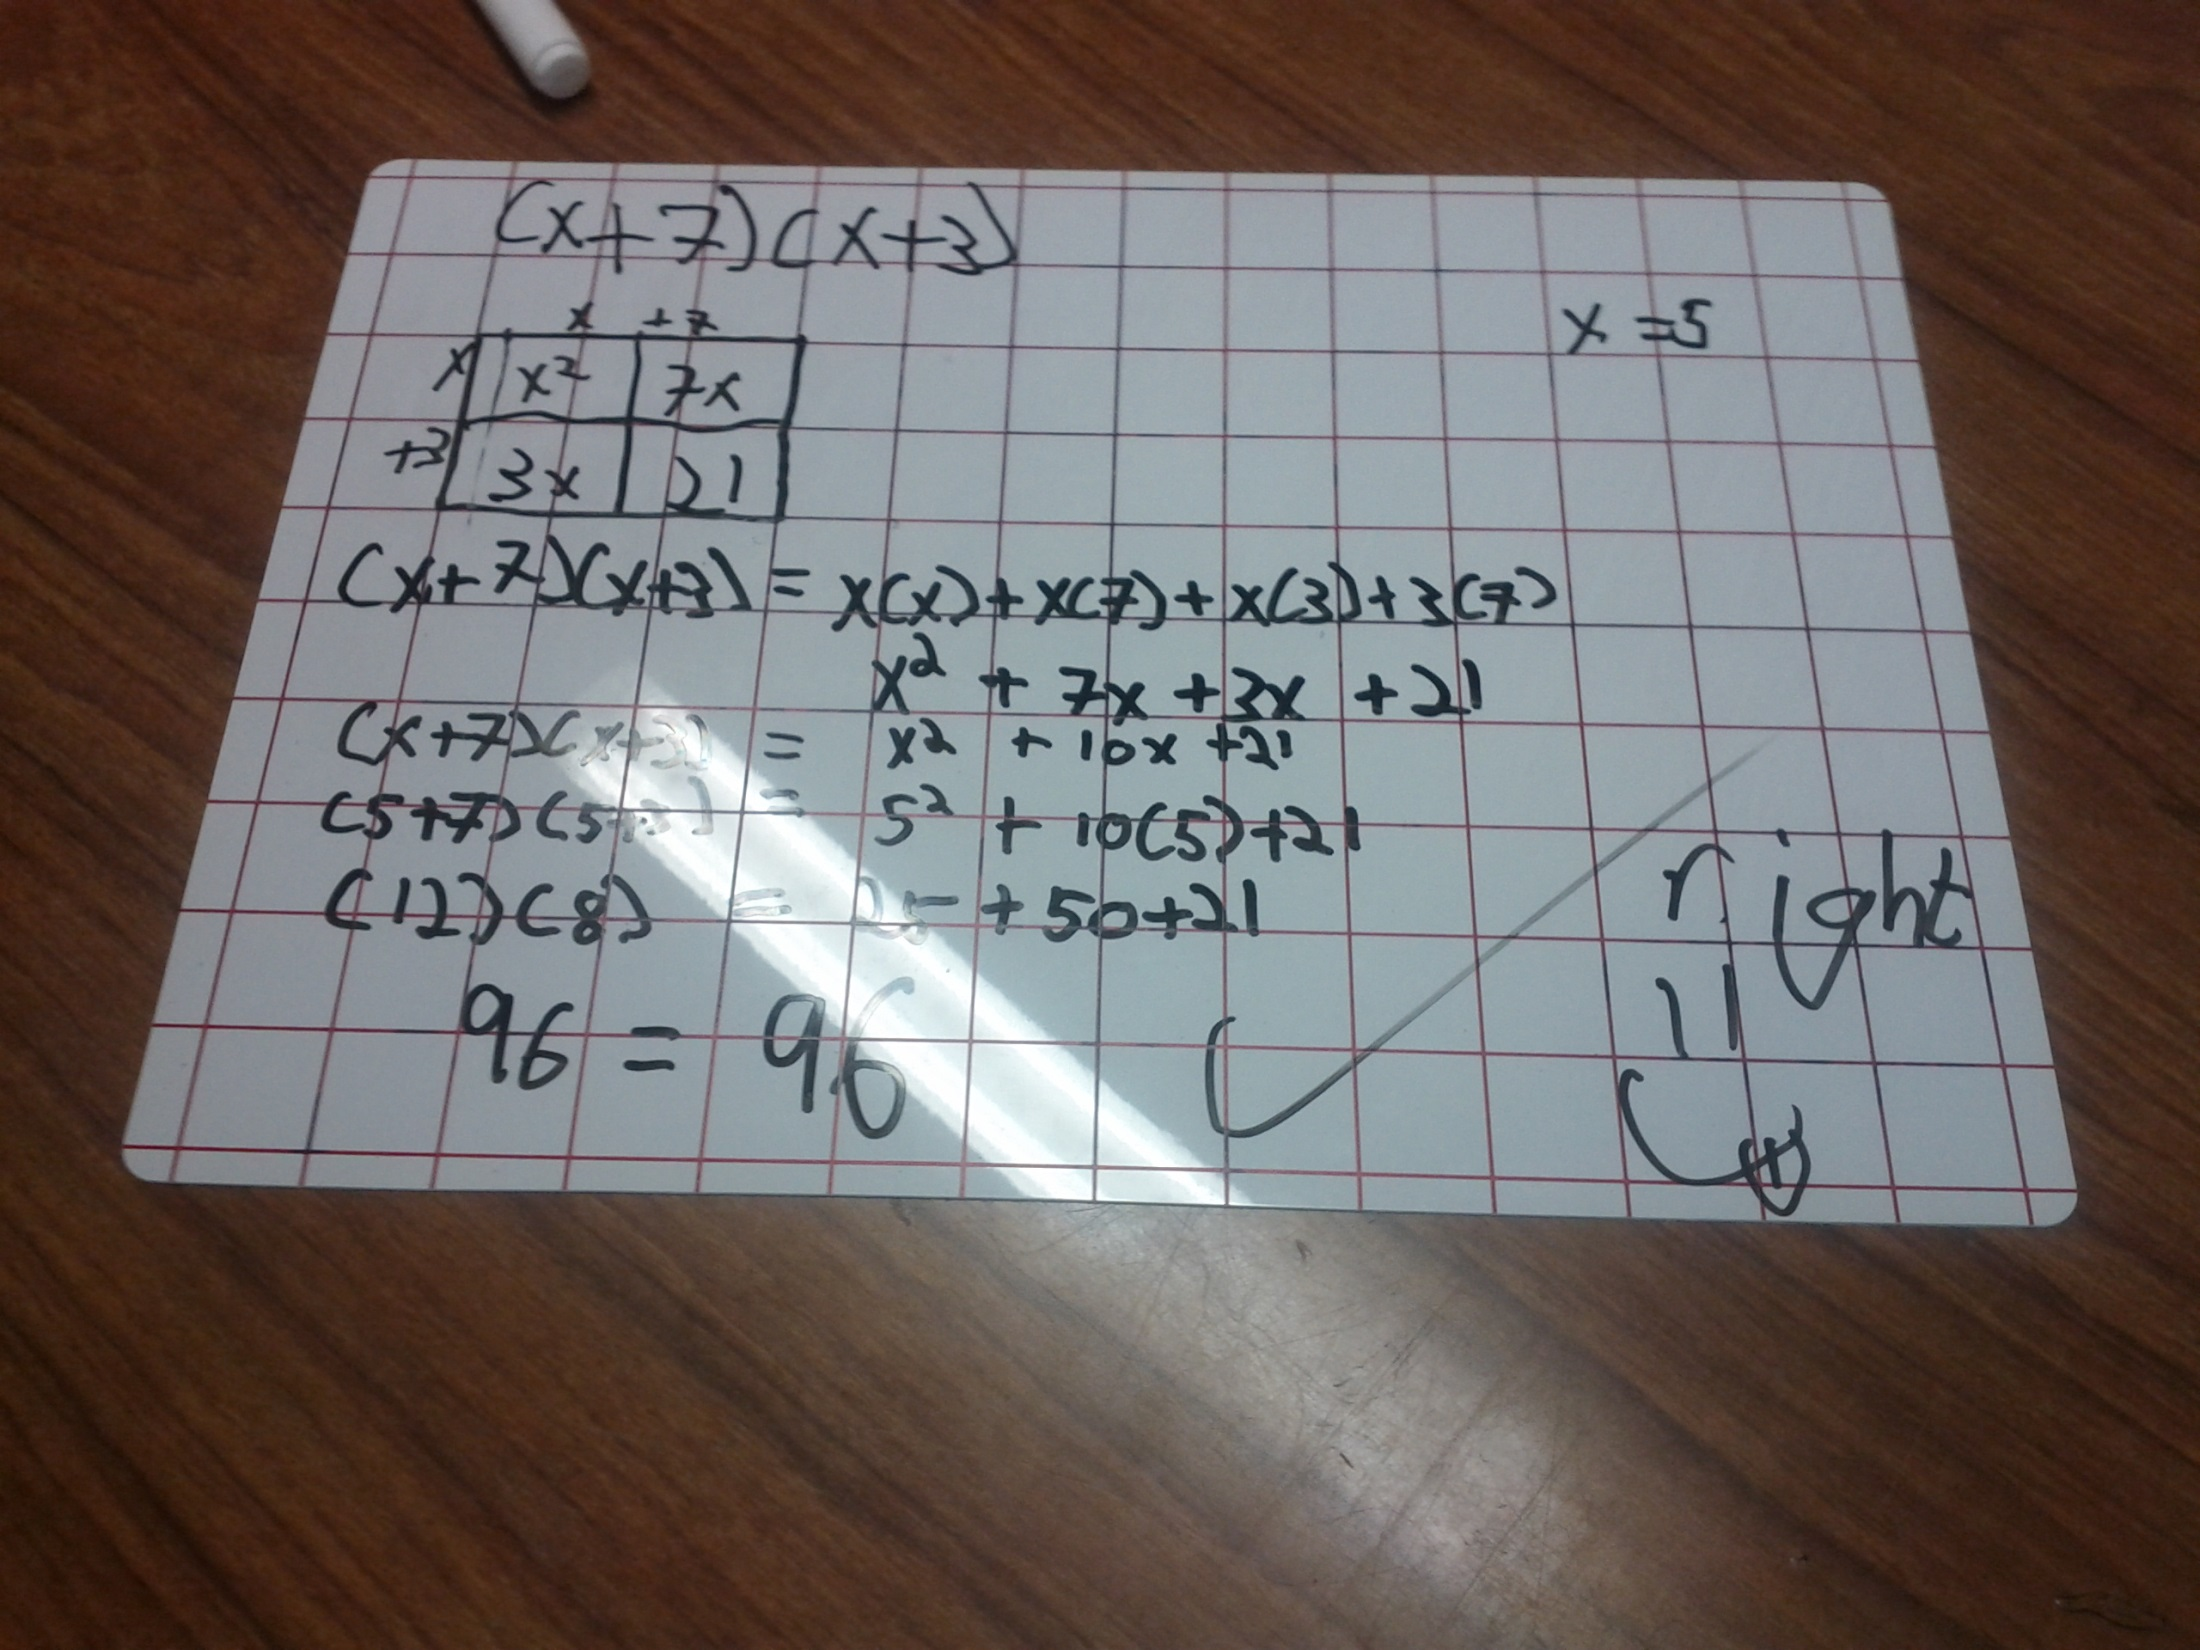 (x+7)(x+3)
x = 5
x +7
x x² 7x
+3 3x 21
(x+7)(x+3) = x(x) + x(7) + x(3) + 3(7)
x² + 7x + 3x + 21
(x+7)(x+3) = x² + 10x + 21
(5+7)(5+3) = 5² + 10(5) + 21
(12)(8) = 25 + 50 + 21
right
96 = 96